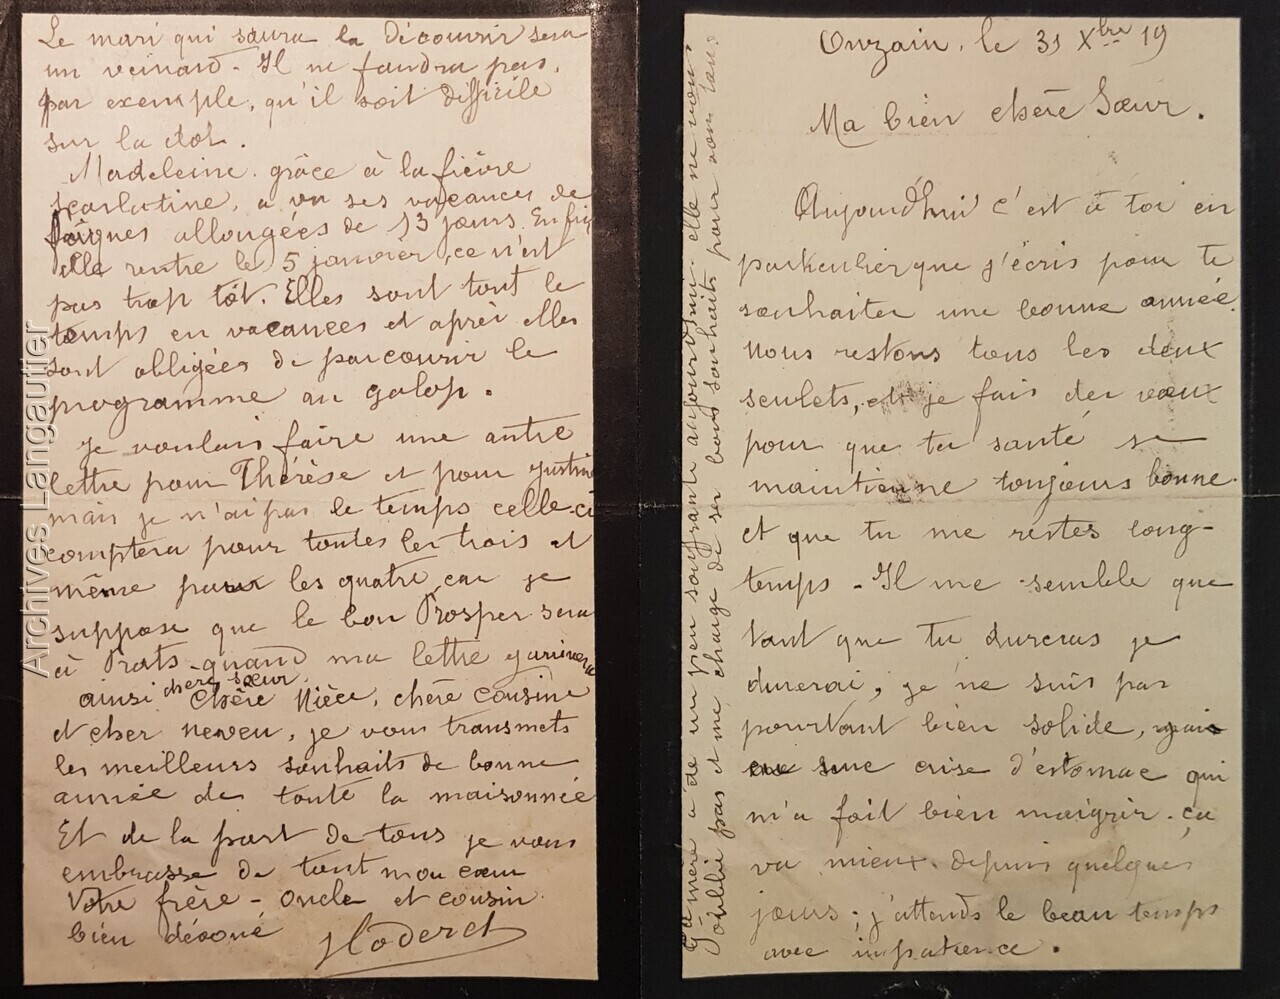 Le mari qui saura la découvrir sera
un veinard - Il ne faudra pas,
par exemple, qu'il soit difficile
sur la dot.
Madeleine grâce à la fièvre
scarlatine, a vu ses vacances de
allongées de 13 jours. Enfin
elle rentre le 5 janvier, ce n'est
pas trop tôt. Elles sont tout le
temps en vacances et après elles
sont obligées de parcourir le
programme au galop.
Je voulais faire une autre
lettre pour Thérèse et pour Justin
mais je n'ai pas le temps celle-ci
comptera pour toutes les trois et
même pour les quatre, car je
suppose que le bon Prosper sera
à Prats quand ma lettre y arrivera
ainsi chère sœur,
chère Nièce, chère cousine
et cher neveu, je vous transmets
les meilleurs souhaits de bonne
année de toute la maisonnée
Et de la part de tous je vous
embrasse de tout mon cœur
Votre frère - oncle et cousin
bien dévoué
Archives Langautier
Onzain, le 31 Xbre 19
Ma bien chère Sœur.
Aujourd'hui c'est à toi en
particulier que j'écris pour te
souhaiter une bonne année.
Nous restons tous les deux
seulets, et je fais des vœux
pour que ta santé se
maintienne toujours bonne
et que tu me restes long-
temps - Il me semble que
tant que tu dureras je
durerai, je ne suis pas
pourtant bien solide, mais
une crise d'estomac qui
m'a fait bien maigrir. ça
va mieux depuis quelques
jours, j'attends le beau temps
avec impatience.
mère a été un peu souffrante aujourd'hui. elle ne vous
oublie pas et me charge de ses bons souhaits pour vous tous